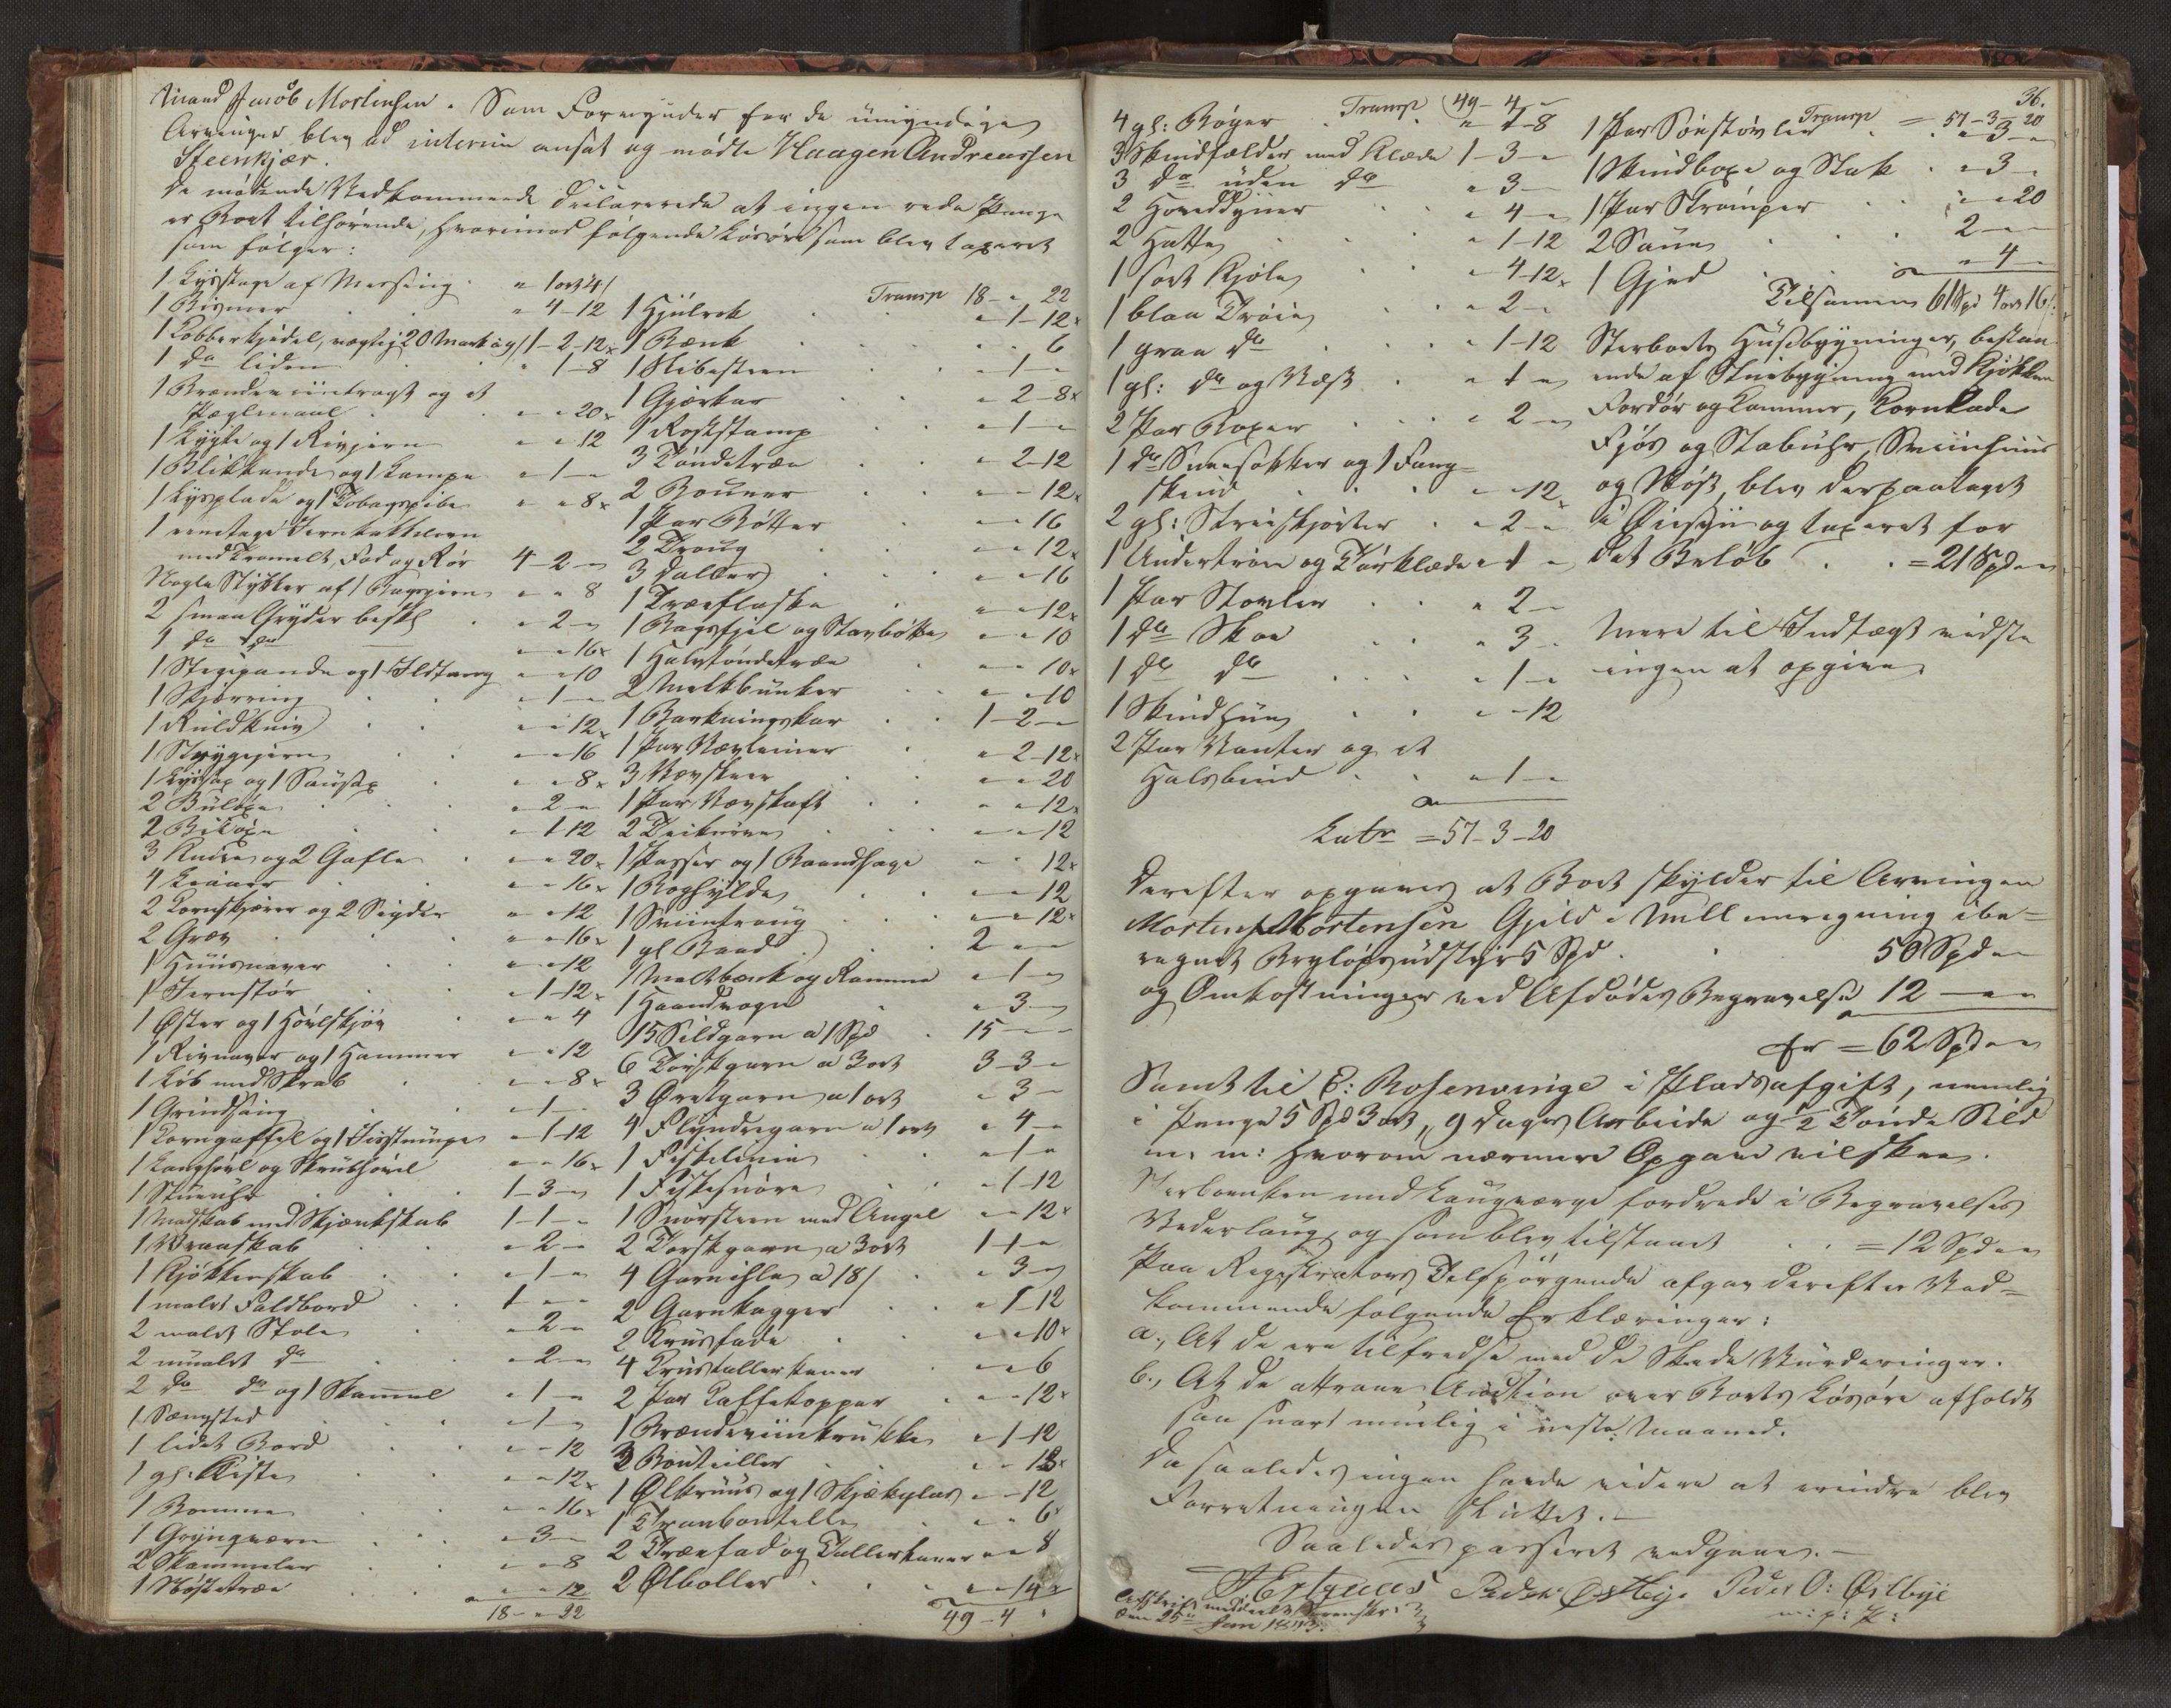 Mand Jacob Mortensen. Som Formynder for de umyndige
Arvinger blev ad interim ansat og mødte Haagen Andreassen
Steenkjær.
De mødende Vedkommende declarerede at ingen rede Penge
er Boet tilhørende, hvorimod følgende Løsøre som blev taxeret
som følger:
1 Lysestage af Messing " 1 ort 4 s
1 Bismer " 4-12
1 Kobberkjedel, vægtig 20 Mark 1-2-12
1 do liden " 1-8
1 Brændeviintragt og et
Pæglemaal " " 20
1 Lygte og 1 Rivjern " " 12
1 Blikkande og 1 Lampe " 1 "
1 Lyseplade og 1 Tobaspibe " " 8
1 eenetages Jernkakkelovn
med Tromelt, Fod og Rør 4-2-"
Nogle Stykker af 1 Bagejern " " 8
2 smaa Gryder besk " 2 "
1 do do " " 16
1 Stegepande og 1 Ildtang " " 10
1 Skjørring " 1 "
1 Ruldkniv " " 12
1 Strygejern " " 16
1 Lysesax og 1 Sausax " " 8
2 Buløxe " 2 "
2 Biløxe " 1-12
3 Knive og 2 Gafle " " 20
4 Leiaaer " " 16
2 Kornskjærer og 2 Sigder " " 12
2 Græv " " 16
1 Huusnaver " " 12
1 Jernstør " 1-12
1 Øster og 1 Hovlskjøv " " 4
1 Rivnaver og 1 Hammer " " 12
1 Løb med Skrab " " 8
1 Grindsaug " 1 "
1 Korngaffel og 1 " 1-12
1 Langhøvl og Skrubhøvel " " 16
1 Stueuhr 1-3-"
1 Madskab med Skjænkskab 1-1-"
1 Vraaskab " 2 "
1 Kjøkkenskab " 1 "
1 malet Foldbord 1 " "
2 malet Stole " 2 "
2 umalet do " 2 "
2 do do og 1 Skammel " 1 "
1 Sængsted " 1 "
1 lidet Bord " " 12
1 gl: Kiste " " 12
1 Bomme " " 16
1 Grynqværn " 3 "
2 Skammeler " " 8
1 Nøstetræe " " 12
18 - " 22
Transp 18 - " 22
1 Hjulrok " 1-12
1 Bænk " " 6
1 Slibesteen " 1 "
1 Gjærkar " 2-8
1 Roststamp " 1 "
3 Tøndetræe " 2-12
2 Bonner " " 12
1 Par Bøtter " " 16
2 Traug " " 12
3 Daller " " 16
1 Træeflaske " " 12
1 Bagefjel og Stavbøtte " " 10
1 Halvtøndetræe " " 10
2 Melkbunker " " 10
1 Barkningskar 1-2-"
1 Par Væveniner " 2-12
3 Vævskeer " " 20
1 Par Vævskaft " " 12
2 " " 12
1 Passer og 1 Baandsage " " 12
1 Boghylde " " 12
1 Sviintraug " " 12
1 gl Baad 2 " "
1 Maltbænk og Ramme " 1 "
1 Haandvogn " 3 "
15 Sildgarn a 1 Spd 15 " "
6 Torskgarn a 3 ort 3-3-"
3 Ørretgarn a 1 ort " 3 "
4 Flyndregarn a 1 ort " 4 "
1 Fiskelinie " 1 "
1 Fiskesnøre " 1-12
1 Snørsteen med Angel " " 12
2 Torskgarn a 3 ort 1-1-"
4 Garnihle a 18 s " 3 "
2 Garnkagger " 1-12
2 Kruusfade " " 10
4 Kruustallerkener " " 6
2 Par Kaffekopper " " 12
1 Brændeviinkrukke " 1-12
3 Bouteiller " " 13
1 Ølkruus og 1 Skjækglas " " 12
1 Tranbontelle " " 6
2 Træefad og Tallerkener " " 8
2 Ølboller " " 14
49-4 "
36.
Transp 49-4-"
4 gl: Bøger " 1-8
3 Skindfælder med Klæde 1-3-"
3 do uden do " 3 "
2 Hoveddyner " 4 "
2 Hatte " 1-12
1 sort Kjole " 4-12
1 blaa Trøie " 2 "
1 graa do " 1-12
1 gl: do og Væst " 1 "
2 Par Boxer " 2 "
1 do Sneesokker og 1 Fang-
skind " " 12
2 gl: Striskjorter " 2 "
1 Undertrøie og Tørklæde " 1 "
1 Par Støvler " 2 "
1 do Skoe " 3 "
1 do do " 1 "
1 Skindhue " " 12
2 Par Vanter og et
Halsbind " 1 "
Lat = 57-3-20
Transp = 57-3-20
1 Par Søestøvler " 3 "
1 Skindboxe og Stak " 3 "
1 Par Strømper " " 20
2 Saue 2 " "
1 Gjed " 4 "
Tilsammen 61 Spd 4 ort 16 s
Sterboets Huusbygninger, bestaa-
ende af Stuebygning med Kjøkken
Fordør og Kammer, Kornlade
Fjøs og Stabuhr, Sviinhuus
og Nøst, blev derpaa taget
i Øiesyn og taxeret for
det Beløb = 21 Spd " "
Mere til Indtægt vidste
ingen at opgive.
Derefter opgaves at Boet skylder til Arvingen
Morten Mortensen Gjeld i Mellemregning ibe-
regnet Bryllupsudstyr 5 Spd. 50 Spd " "
og Omkostninger ved Afdødes Begravelse 12 " "
Er = 62 Spd " "
Samt til E: Rosenvinge i Pladsafgift, nemlig
i Penge 5 Spd 3 ort, 9 Dages Arbeide og 1/2 Tønde Sild
m. m: hvorom nærmere Opgave vil skee.
Sterboenken med Laugværge fordrede i Begravelses
Vederlaug, og som blev tilstaaet = 12 Spd " "
Paa Registrators Tilspørgende afgav derefter Ved-
kommende følgende Erklæringer:
a., At de ere tilfredse med de skede Vurderinger.
b., At de attraae Auction over Boets Løsøre afholdt
saa snart muelig i neste Maaned.
Da saaledes ingen havde videre at erindre blev
Forretningen sluttet. —
Saaledes passeret vedgaaes. —
Peder Østbye Peder O: Østbye
m: p: P:
Afskrift meddeelt
den 25de Jan 1843.